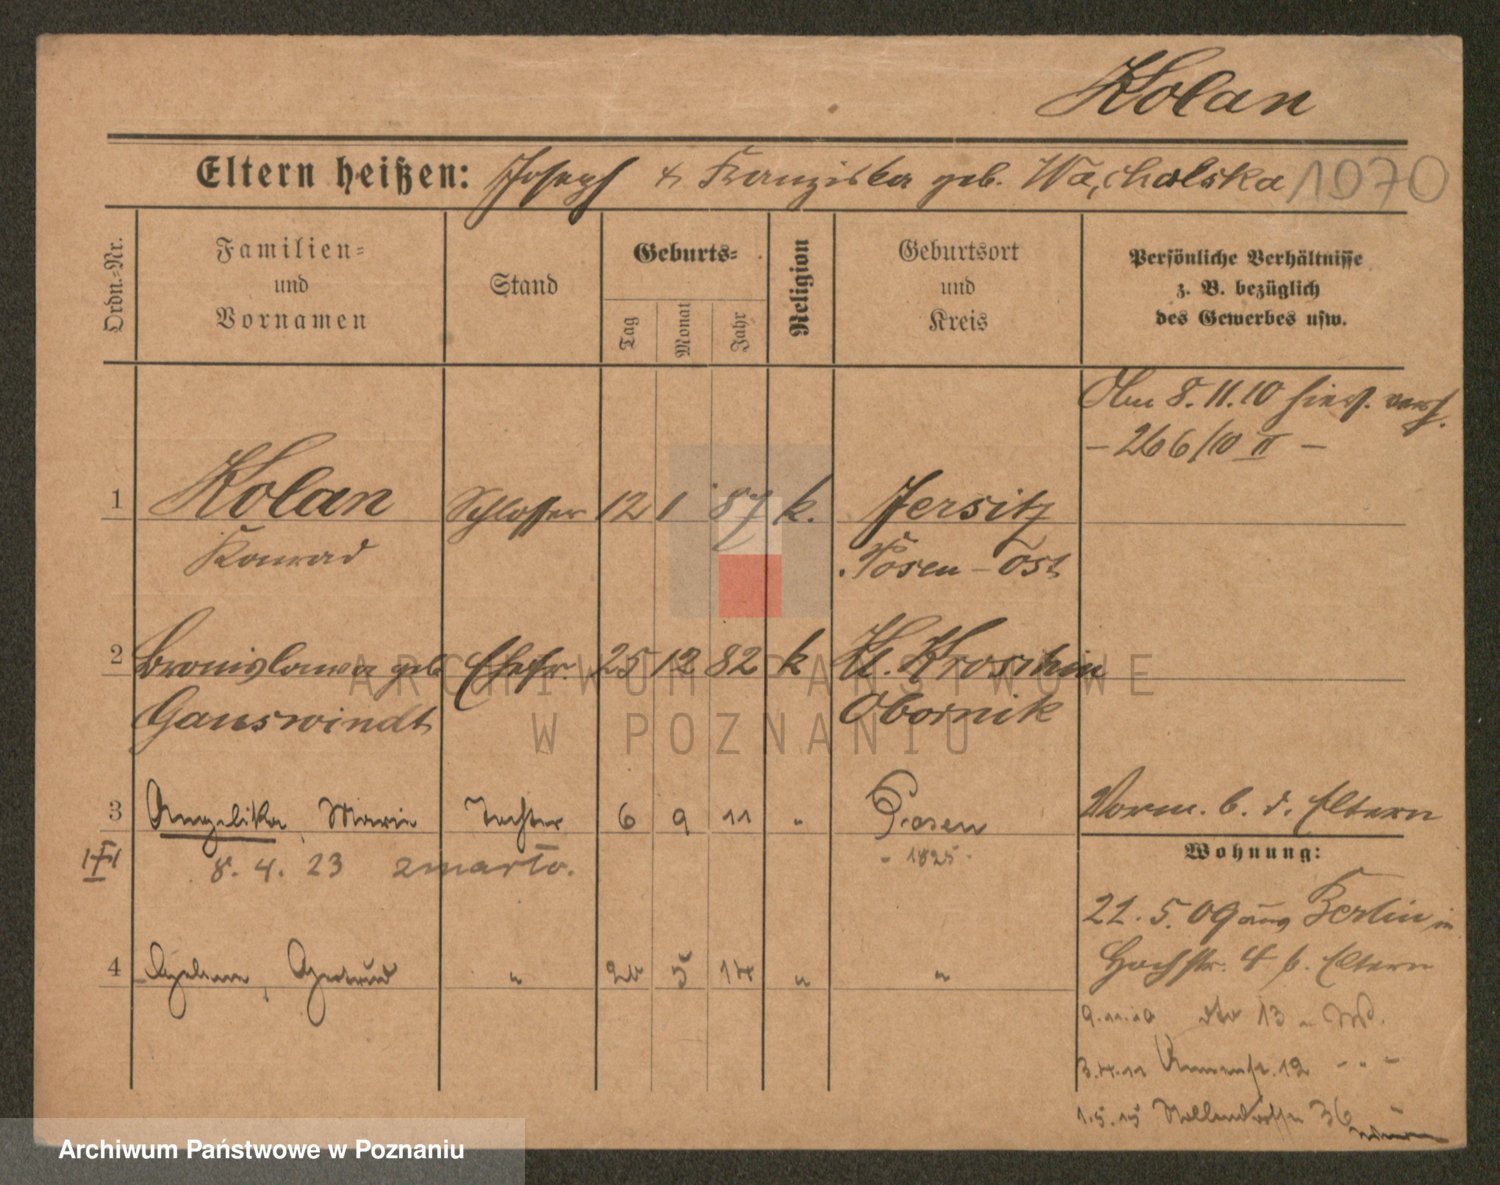 Kolan
Eltern heißen: Joseph & Franziska geb. Wacholska 1070
Ordn.-Nr.
Familien-
und
Vornamen
Stand
Geburts-
Tag
Monat
Jahr
Religion
Geburtsort
und
Kreis
Persönliche Verhältnisse
z. B. bezüglich
des Gewerbes usw.
Am 8.11.10 hier verh.
- 266/10 II -
1 Kolan Schlosser 12 1 87 k. Jersitz
Konrad Posen-Ost
2 Bronislawa geb Ehefr. 25 12 82 k Kl. Kroschin
Ganswindt Obornik
3 Angelika, Maria Tochter 6 9 11 " Posen
8. 4. 23 zmarła. - 1825 -
Vorm. b. d. Eltern
Wohnung:
22. 5. 09 aus Berlin in
Hochstr. 4 b. Eltern
4 Gertrud " 20 5 14 " "
9.11.10 dto 13
3.4.11 12 - " -
1.5.15 36
ARCHIWUM PAŃSTWOWE
W POZNANIU
Archiwum Państwowe w Poznaniu